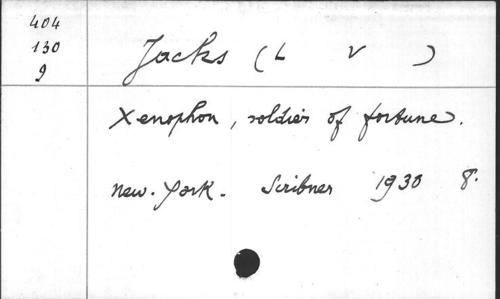 404
130
9
Jacks (L V )
Xenophon, soldier of fortune.
New-York. Scribner 1930 8.